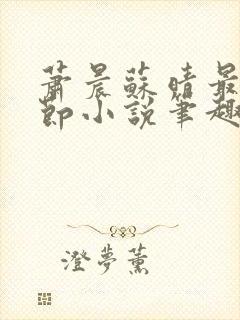 蕭晨蘇晴最
節小說筆趣
澄夢薰